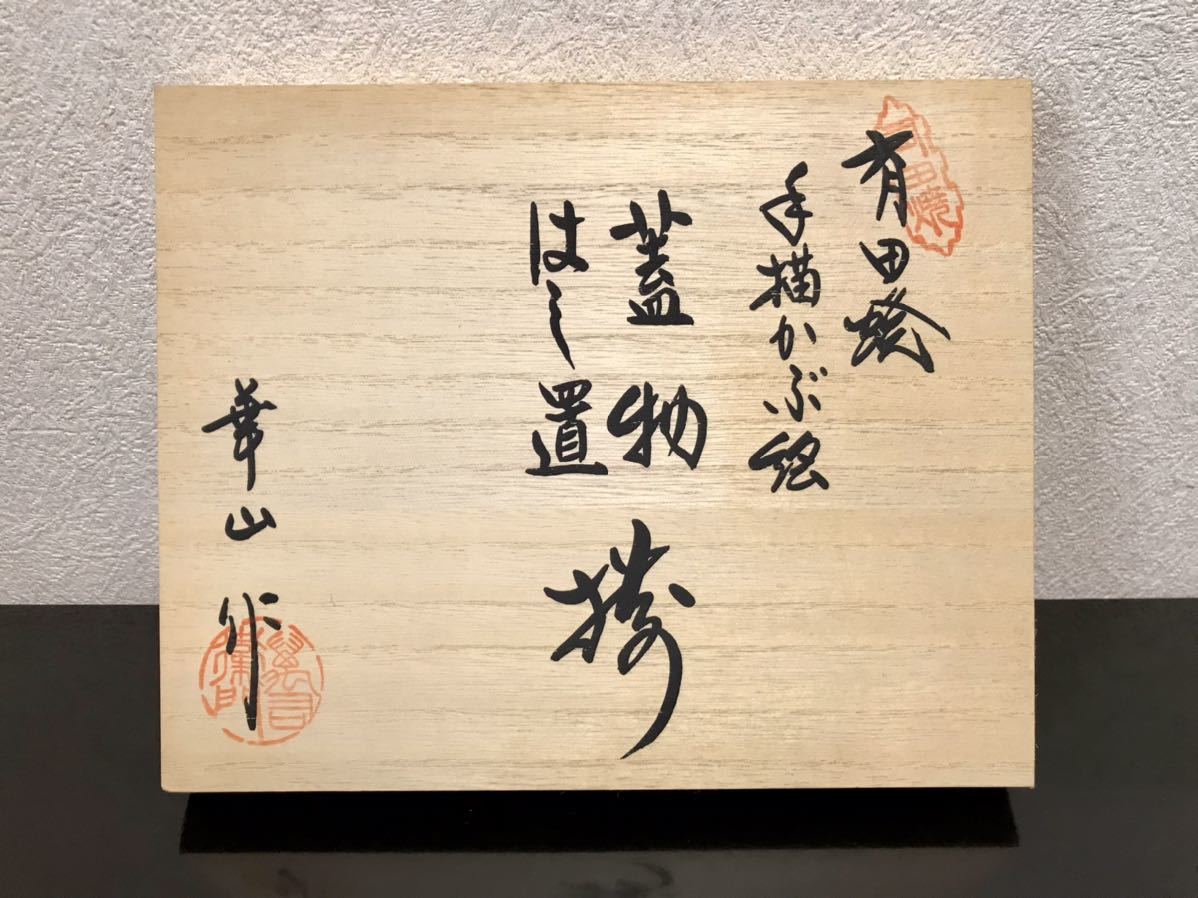 有田焼
有田焼
手描かぶ絵
蓋物
はし置
揃
華山作